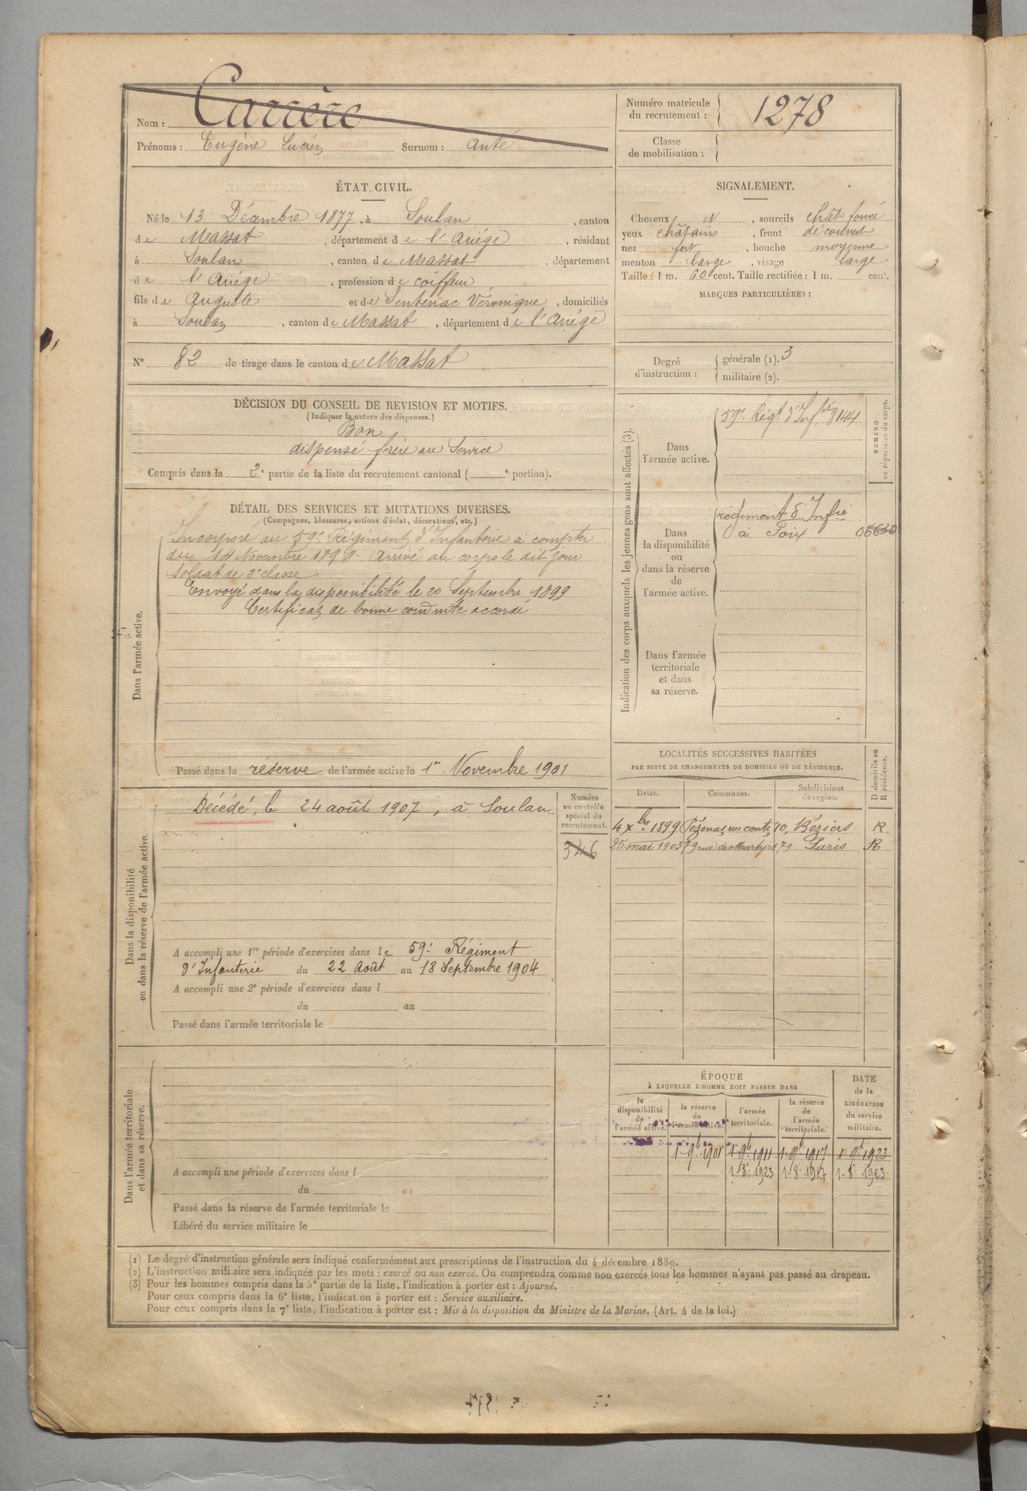 Nom : Carrère
Prénoms : Eugène Lucien Surnom : Anté
Numéro matricule du recrutement : 1278
Classe de mobilisation :
ÉTAT CIVIL.
Né le 13 Décembre 1877, à Soulan, canton
de Massat, département de l'Ariège, résidant
à Soulan, canton de Massat, département
de l'Ariège, profession de coiffeur
fils de Auguste et de Sentenac Véronique, domiciliés
à Soulan, canton de Massat, département de l'Ariège
N° 82 de tirage dans le canton de Massat
SIGNALEMENT.
Cheveux N, sourcils chât foncé
yeux châtains, front découvert
nez fort, bouche moyenne
menton large, visage large
Taille : 1 m. 60 cent. Taille rectifiée : 1 m. cent.
MARQUES PARTICULIÈRES :
Degré d'instruction : générale (1). 3
militaire (2).
DÉCISION DU CONSEIL DE REVISION ET MOTIFS.
(Indiquer la nature des dispenses.)
Bon
dispensé frère au service
Compris dans la 2e partie de la liste du recrutement cantonal ( e portion).
DÉTAIL DES SERVICES ET MUTATIONS DIVERSES.
(Campagnes, blessures, actions d'éclat, décorations, etc.)
Dans l'armée active.
Incorporé au 59e Régiment d'Infanterie à compter
du 14 Novembre 1898. Arrivé au corps le dit jour
soldat de 2e classe
Envoyé dans la disponibilité le 20 Septembre 1899
Certificat de bonne conduite accordé
Passé dans la réserve de l'armée active le 1er Novembre 1901
Indication des corps auxquels les jeunes gens sont affectés (3).
NUMÉRO au répertoire du corps.
Dans l'armée active.
59e Régt d'Inf. 8144
Dans la disponibilité ou dans la réserve de l'armée active.
régiment d'Infie
à Foix
Dans l'armée territoriale et dans sa réserve.
LOCALITÉS SUCCESSIVES HABITÉES
PAR SUITE DE CHANGEMENTS DE DOMICILE OU DE RÉSIDENCE.
Dates. Communes. Subdivisions de région. D domicile ou R résidence.
4 xbre 1899 Pézenas Béziers R
25 mai 1903 79 rue des Martyrs 79 Paris R
Dans la disponibilité ou dans la réserve de l'armée active.
Numéro au contrôle spécial du recrutement.
346
Décédé, le 24 août 1907, à Soulan
A accompli une 1re période d'exercices dans le 59e Régiment
d'Infanterie du 22 Août au 18 Septembre 1904
A accompli une 2e période d'exercices dans l
du au
Passé dans l'armée territoriale le
Dans l'armée territoriale et dans sa réserve.
A accompli une période d'exercices dans l
du au
Passé dans la réserve de l'armée territoriale le
Libéré du service militaire le
ÉPOQUE
À LAQUELLE L'HOMME DOIT PASSER DANS
la disponibilité de l'armée active. la réserve de l'armée active. l'armée territoriale. la réserve de l'armée territoriale.
DATE de la LIBÉRATION du service militaire.
1 9b 1901 1 9b 1911 1 9b 1917 1 9b 1923
(1) Le degré d'instruction générale sera indiqué conformément aux prescriptions de l'instruction du 4 décembre 1889.
(2) L'instruction militaire sera indiquée par les mots : exercé ou non exercé. On comprendra comme non exercés tous les hommes n'ayant pas passé au drapeau.
(3) Pour les hommes compris dans la 5e partie de la liste, l'indication à porter est : Ajourné.
Pour ceux compris dans la 6e liste, l'indication à porter est : Service auxiliaire.
Pour ceux compris dans la 7e liste, l'indication à porter est : Mis à la disposition du Ministre de la Marine. (Art. 4 de la loi.)